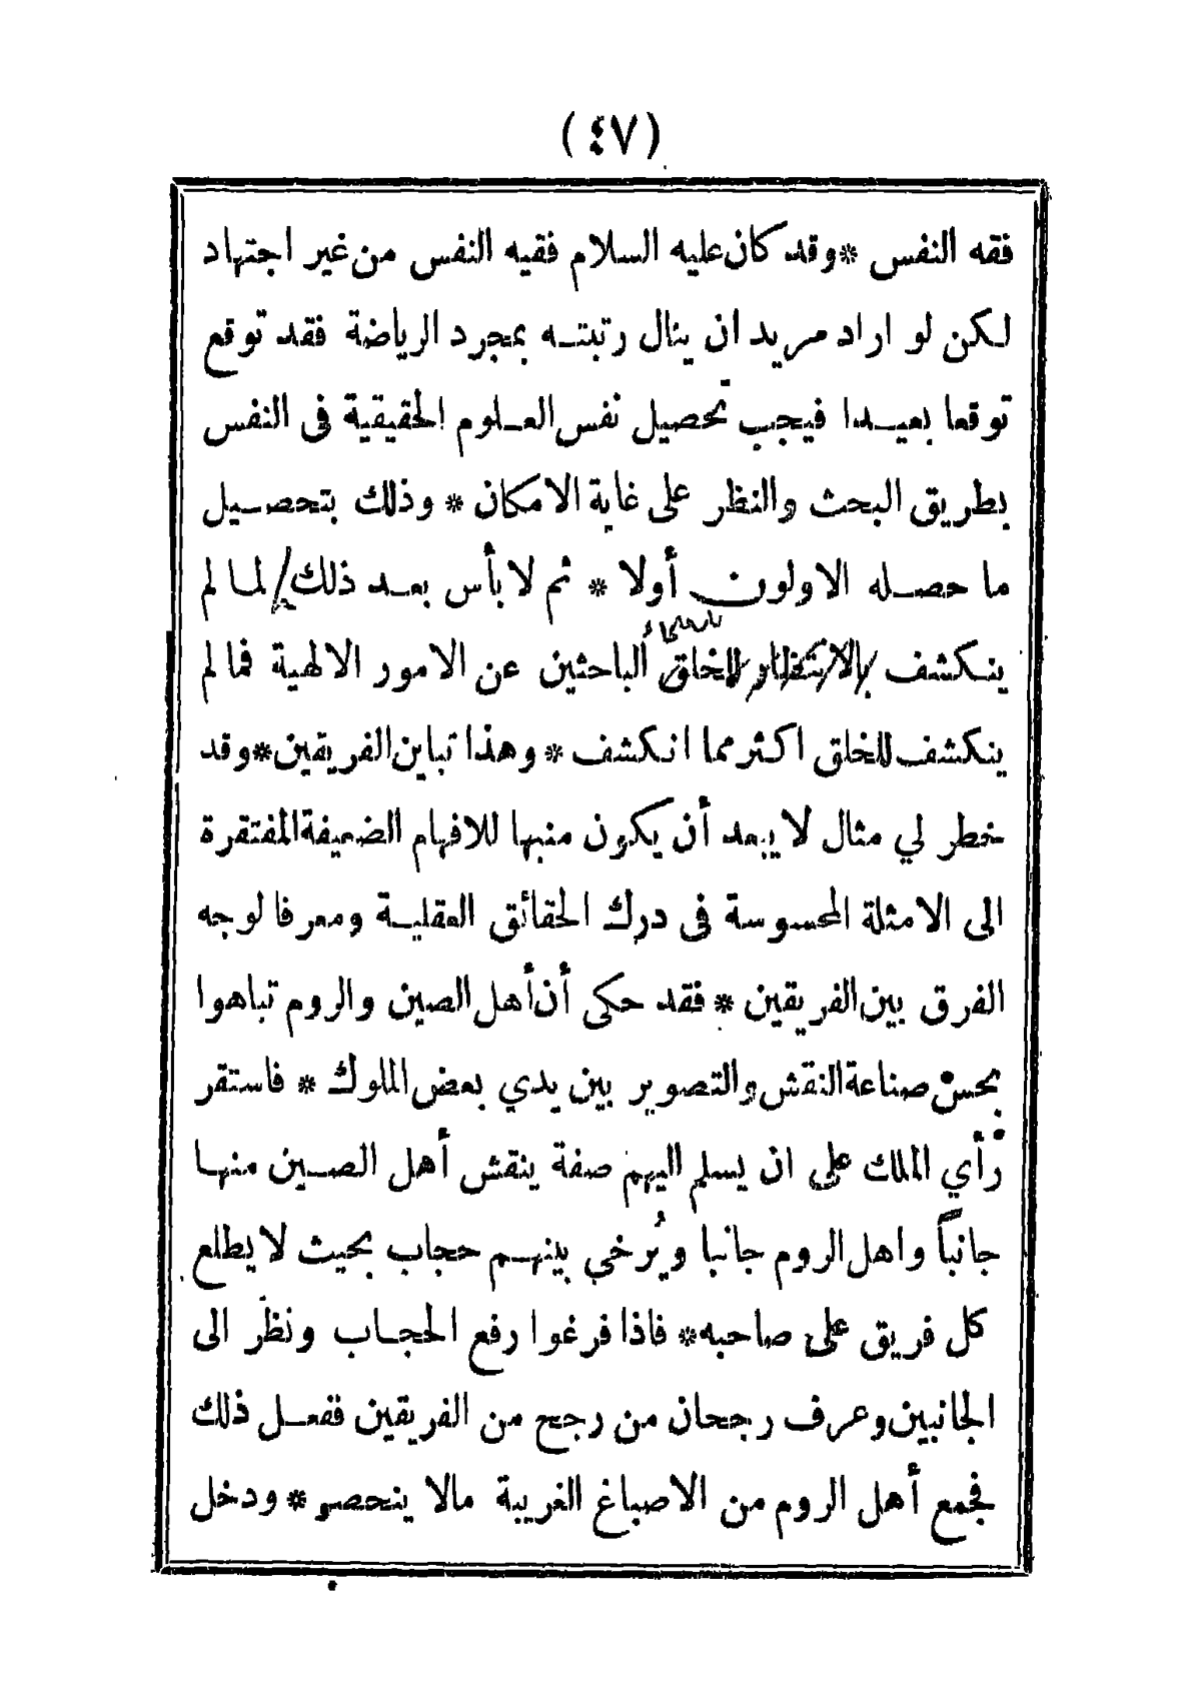 (٤٧)
فقه النفس *وقد كان عليه السلام فقيه النفس من غير اجتهاد
لكن لو اراد مريد ان ينال رتبته بمجرد الرياضة فقد توقع
توقعا بعيدا فيجب تحصيل نفس العلوم الحقيقية فى النفس
بطريق البحث والنظر على غاية الامكان * وذلك بتحصيل
ما حصله الاولون أولا * ثم لا بأس بعد ذلك لما لم
ينكشف بالانتظار للخلق الباحثين عن الامور الالهية فما لم
ينكشف للخلق اكثر مما انكشف * وهذا تباين الفريقين *وقد
خطر لي مثال لا يبعد أن يكون منبها للافهام الضعيفة المفتقرة
الى الامثلة المحسوسة فى درك الحقائق العقلية ومعرفا لوجه
الفرق بين الفريقين * فقد حكى أن أهل الصين والروم تباهوا
بحسن صناعة النقش والتصوير بين يدي بعض الملوك * فاستقر
رأي الملك على ان يسلم اليهم صفة ينقش أهل الصين منها
جانباً واهل الروم جانبا ويُرخي بينهم حجاب بحيث لا يطلع
كل فريق على صاحبه* فاذا فرغوا رفع الحجاب ونظر الى
الجانبين وعرف رجحان من رجح من الفريقين ففعل ذلك
فجمع أهل الروم من الاصباغ الغريبة مالا ينحصر * ودخل